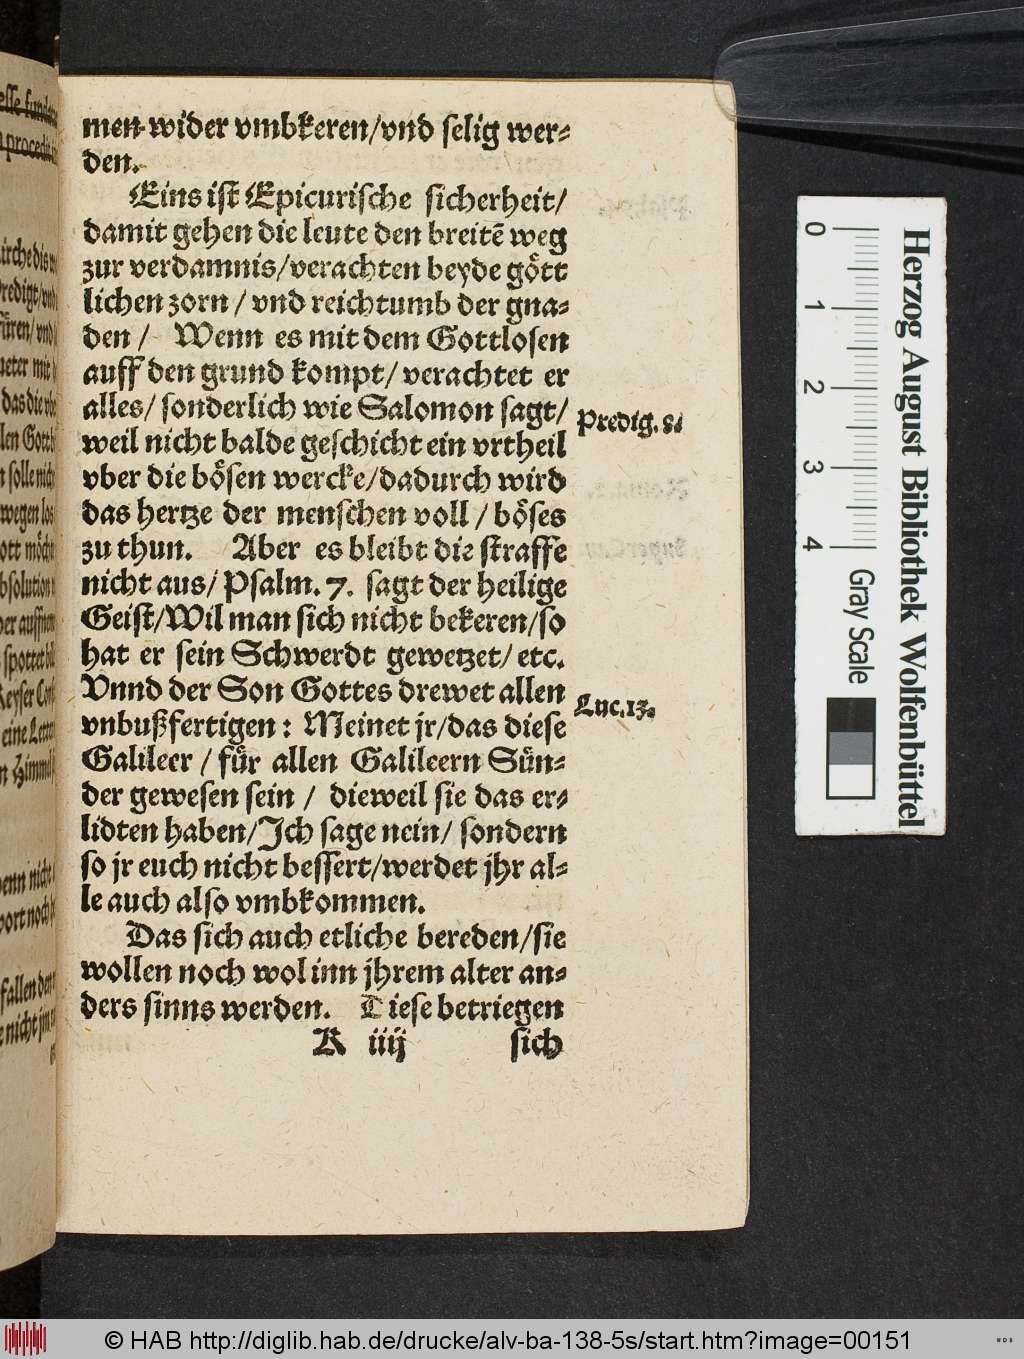 men wider vmbkeren/vnd selig wer=
den.
Eins ist Epicurische sicherheit/
damit gehen die leute den breitē weg
zur verdamnis/verachten beyde gött
lichen zorn / vnd reichtumb der gna=
den / Wenn es mit dem Gottlosen
auff den grund kompt/ verachtet er
alles/ sonderlich wie Salomon sagt/
Predig. 8.
weil nicht balde geschicht ein vrtheil
vber die bösen wercke/dadurch wird
das hertze der menschen voll / böses
zu thun. Aber es bleibt die straffe
nicht aus/ Psalm. 7. sagt der heilige
Geist/Wil man sich nicht bekeren/so
hat er sein Schwerdt gewetzet/ etc.
Vnnd der Son Gottes drewet allen
Luc. 13.
vnbußfertigen : Meinet jr/das diese
Galileer / für allen Galileern Sün=
der gewesen sein / dieweil sie das er=
lidten haben/Ich sage nein/ sondern
so jr euch nicht bessert/werdet jhr al=
le auch also vmbkommen.
Das sich auch etliche bereden/sie
wollen noch wol inn jhrem alter an=
ders sinns werden. Diese betriegen
K iiij sich
Herzog August Bibliothek Wolfenbüttel
0 1 2 3 4 Gray Scale
© HAB http://diglib.hab.de/drucke/alv-ba-138-5s/start.htm?image=00151